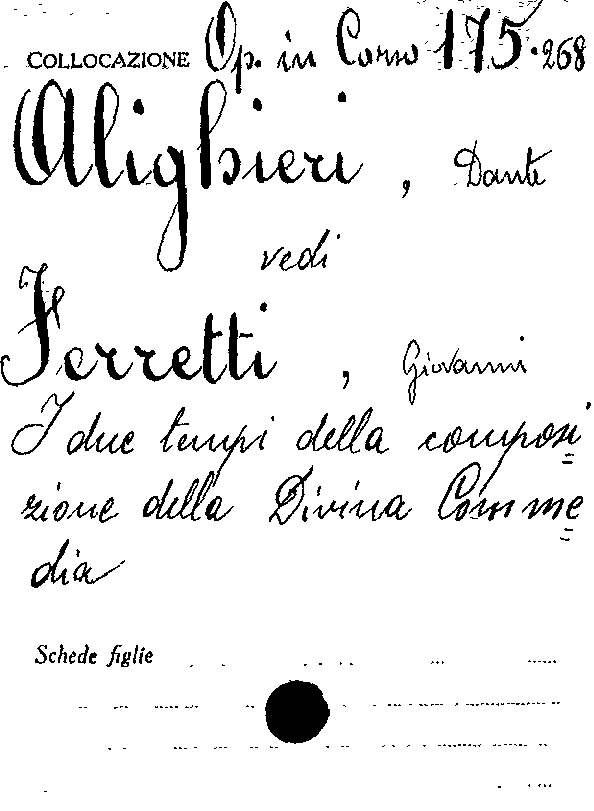 COLLOCAZIONE Op. in Corso 175.268
Alighieri, Dante
vedi
Ferretti, Giovanni
I due tempi della composi=
zione della Divina Comme=
dia
Schede figlie